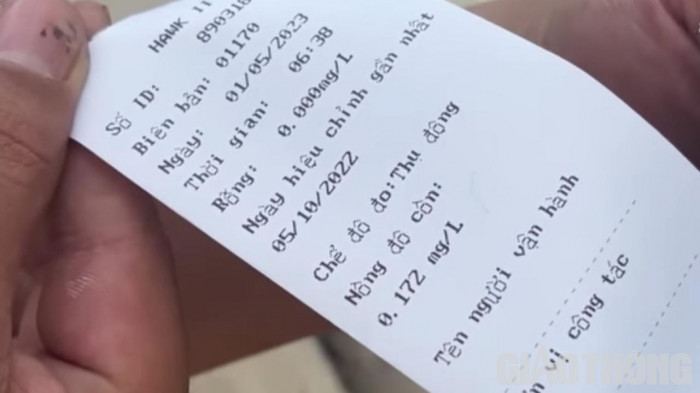 HAWK II
Số ID: 890318
Biên bản: 01170
Ngày: 01/05/2023
Thời gian: 06:38
Rỗng: 0.000mg/L
Ngày hiệu chỉnh gần nhất
05/10/2022
Chế độ đo:Thụ động
Nồng độ cồn:
0.172 mg/L
Tên người vận hành
vị công tác
GIAOTHONG